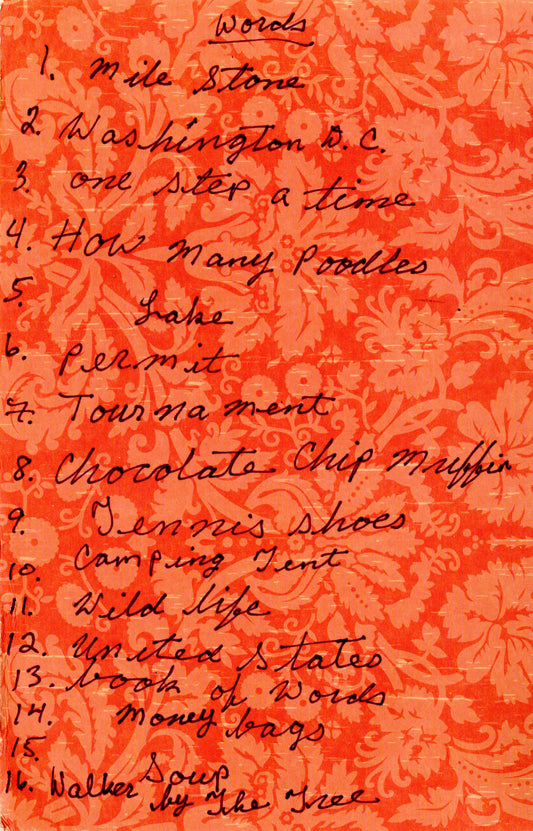 Words
1. Mile Stone
2. Washington D.C.
3. one step a time
4. How Many Poodles
5. Lake
6. Permit
7. Tournament
8. Chocolate Chip Muffin
9. Tennis shoes
10. Camping Tent
11. Wild life
12. United States
13. book of Words
14. Money bags
15. Soup
16. Walker by The Tree